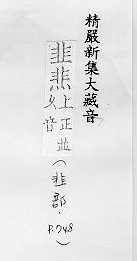 精嚴新集大藏音
韭
上正並
久音
（韭部．P.748）